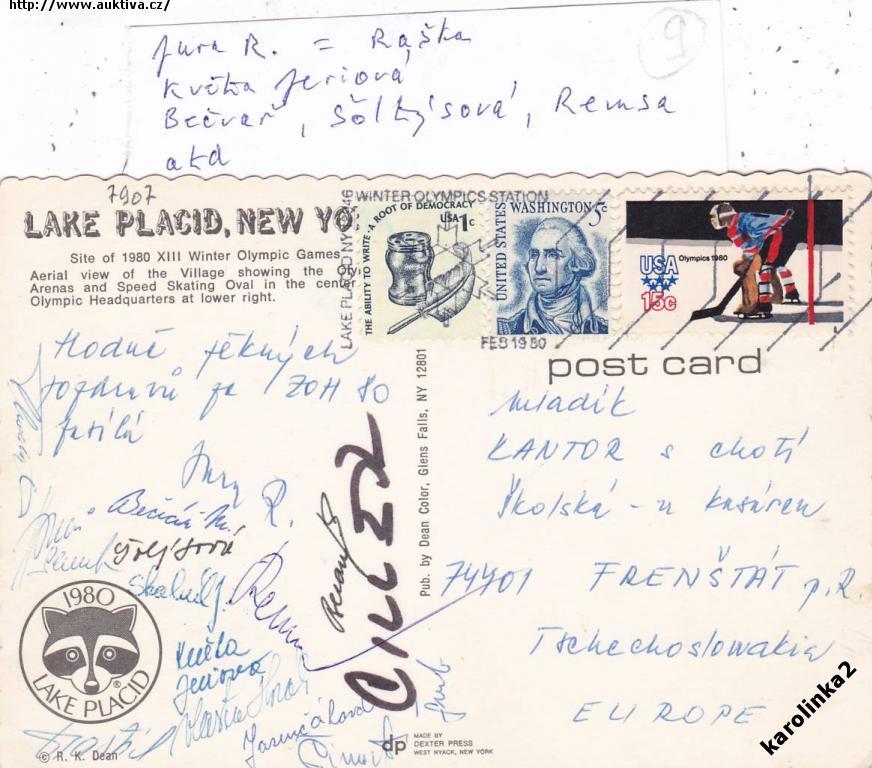 http://www.auktiva.cz/
Jura R. = Raška
Květa Jeriová
Bečvář, Šoltýsová, Remsa
atd
9
7907
LAKE PLACID, NEW YO
Site of 1980 XIII Winter Olympic Games
Aerial view of the Village showing the
Arenas and Speed Skating Oval in the center
Olympic Headquarters at lower right.
WINTER OLYMPICS STATION
LAKE PLACID NY
FEB 1980
THE ABILITY TO WRITE · A ROOT OF DEMOCRACY
USA 1c
UNITED STATES
WASHINGTON 5c
USA
Olympics 1980
15c
post card
Hodně pěkných
pozdravů ze ZOH 80
posílá
Jura R.
Květa
Jeriová
CILLER
Pub. by Dean Color, Glens Falls, NY 12801
mladík
KANTOR s chotí
Školská - u kasáren
74401 FRENŠTÁT p. R.
Tschechoslowakia
EUROPE
1980
LAKE PLACID
®
© R. K. Dean
dp
MADE BY
DEXTER PRESS
WEST NYACK, NEW YORK
karolinka2